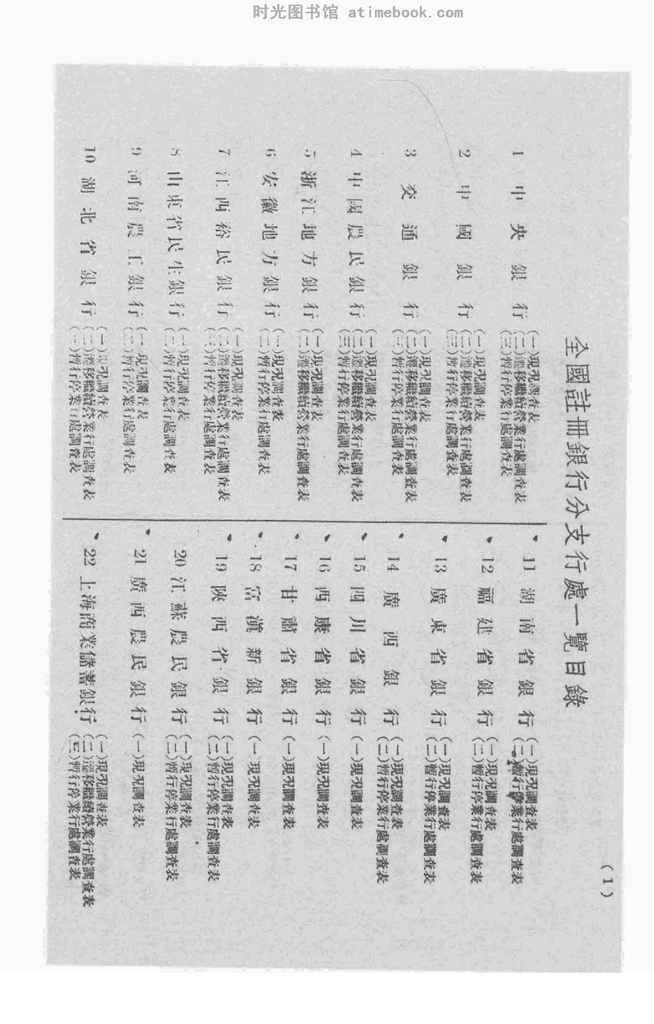 时光图书馆 atimebook.com
全國註冊銀行分支行處一覽目錄
(1)
1 中央銀行
(一)現况調查表
(二)遷移繼續營業行處調查表
(三)暫行停業行處調查表
2 中國銀行
(一)現况調查表
(二)遷移繼續營業行處調查表
(三)暫行停業行處調查表
3 交通銀行
(一)現况調查表
(二)遷移繼續營業行處調查表
(三)暫行停業行處調查表
4 中國農民銀行
(一)現况調查表
(二)遷移繼續營業行處調查表
(三)暫行停業行處調查表
5 浙江地方銀行
(一)現况調查表
(二)遷移繼續營業行處調查表
6 安徽地方銀行
(一)現况調查表
(二)暫行停業行處調查表
7 江西裕民銀行
(一)現况調查表
(二)遷移繼續營業行處調查表
(三)暫行停業行處調查表
8 山東省民生銀行
(一)現况調查表
(二)暫行停業行處調查表
9 河南農工銀行
(一)現况調查表
(二)暫行停業行處調查表
10 湖北省銀行
(一)現况調查表
(二)遷移繼續營業行處調查表
(三)暫行停業行處調查表
11 湖南省銀行
(一)現况調查表
(二)暫行停業行處調查表
12 福建省銀行
(一)現况調查表
(二)暫行停業行處調查表
13 廣東省銀行
(一)現况調查表
(二)暫行停業行處調查表
14 廣西銀行
(一)現况調查表
(二)暫行停業行處調查表
15 四川省銀行
(一)現况調查表
16 西康省銀行
(一)現况調查表
17 甘肅省銀行
(一)現况調查表
18 富滇新銀行
(一)現况調查表
19 陝西省銀行
(一)現况調查表
(二)暫行停業行處調查表
20 江蘇農民銀行
(一)現况調查表
(二)暫行停業行處調查表
21 廣西農民銀行
(一)現况調查表
22 上海商業儲蓄銀行
(一)現况調查表
(二)遷移繼續營業行處調查表
(三)暫行停業行處調查表